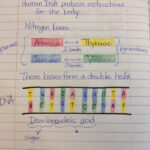 Human DNA protects instructions
for the body
Nitrogen bases
purines Adenine Thymine pyrimidines
Guanine
These bases form a double helix
DNA
Deoxyribonucleic acid
Sugar